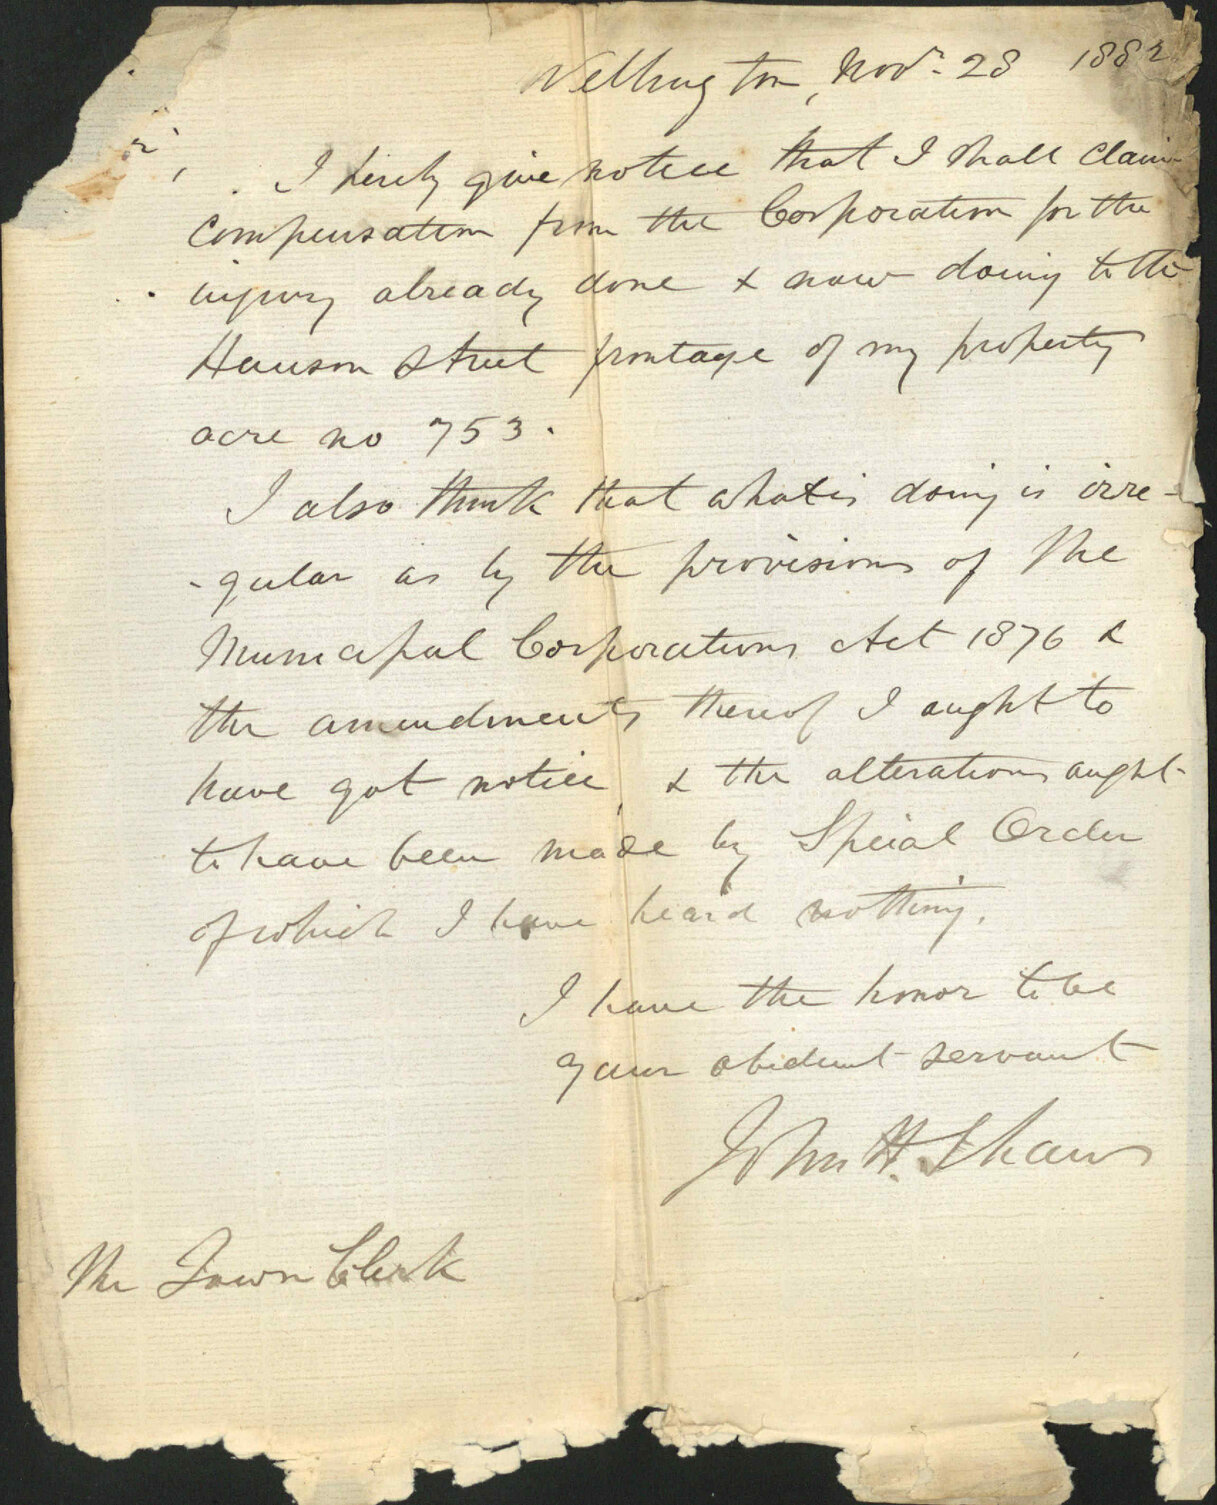 Wellington, Novr. 28 1882
r,
I hereby give notice that I shall claim
compensation from the Corporation for the
injury already done & now doing to the
Hanson Street frontage of my property
acre no 753.
I also think that what is doing is irre-
-gular as by the provisions of the
Municipal Corporations Act 1876 &
the amendments thereof I aught to
have got notice, & the alterations aught
to have been made by Special Order
of which I have heard nothing.
I have the honor to be
your obedient servant
John H. Shaw
The Town Clerk